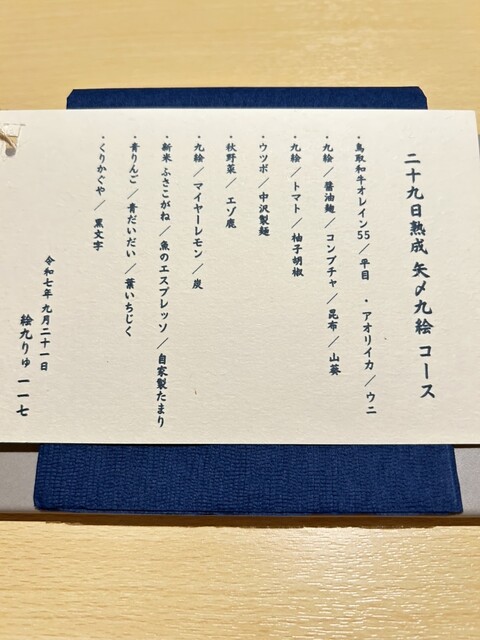 二十九日熟成 矢〆九絵 コース
・鳥取和牛オレイン55／平目 ・アオリイカ／ウニ
・九絵／醬油麹／コンブチャ／昆布／山葵
・九絵／トマト／柚子胡椒
・ウツボ／中沢製麺
・秋野菜／エゾ鹿
・九絵／マイヤーレモン／炭
・新米 ふさこがね／魚のエスプレッソ／自家製たまり
・青りんご／青だいだい／葉いちじく
・くりかぐや／黒文字
令和七年 九月二十一日
絵九りゅ 一一七